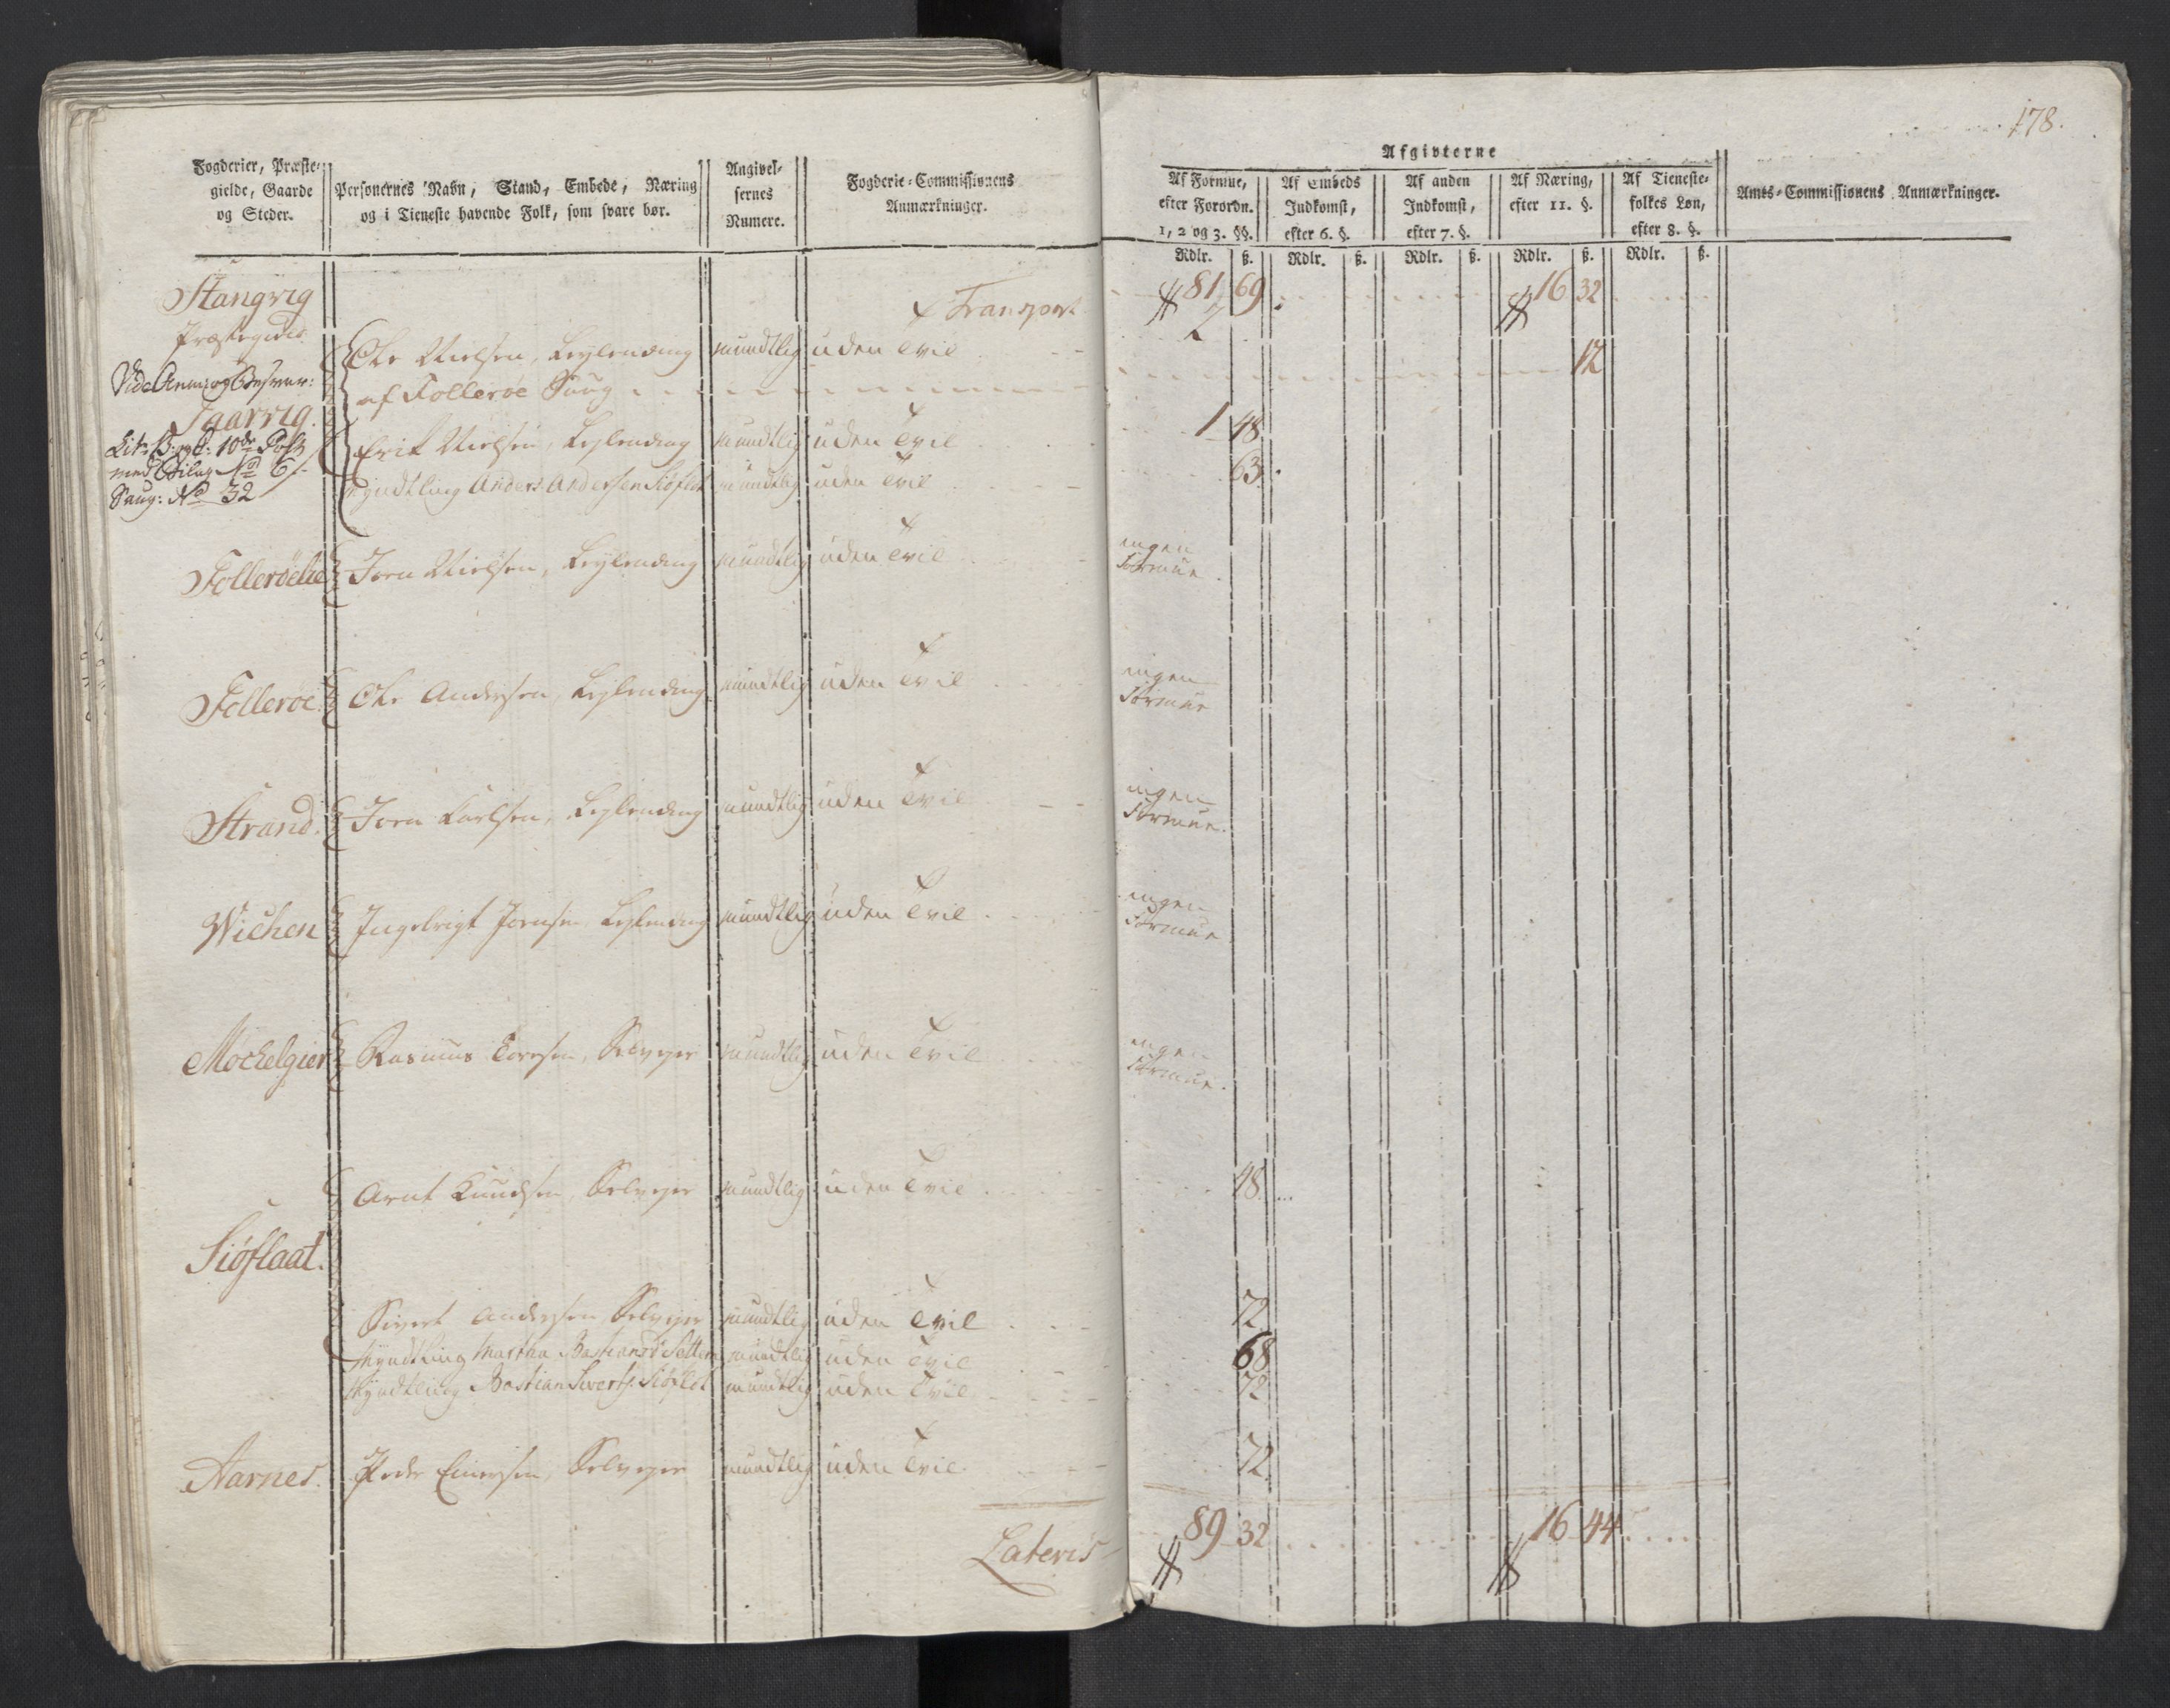 178.
Fogderier, Præste-
gielde, Gaarde
og Steder.
Personernes Navn, Stand, Embede, Næring
og i Tieneste havende Folk, som svare bør.
Angivel-
sernes
Numere.
Fogderie-Commissionens
Anmærkninger.
Afgivterne
Af Formue,
efter Forordn.
1, 2 og 3. §§.
Af Embeds
Indkomst,
efter 6. §.
Af anden
Indkomst,
efter 7. §.
Af Næring,
efter 11. §.
Af Tieneste-
folkes Løn,
efter 8. §.
Amts-Commissionens Anmærkninger.
Rdlr. ß. Rdlr. ß. Rdlr. ß. Rdlr. ß. Rdlr. ß.
Stangvig
Præstegield
Transport 81 69 16 32
Ole Nielsen, Leylending mundtlig uden Tvil 2
af Folleroe Saug 12
Vide Anm: og
Saarvig.
Litr B: og C: 10de Post
med Bilag No 6
Saug: No 32
Erik Nielsen, Leylending mundtlig uden Tvil 1 48
Myndtling Anders Andersen Siøflot mundtlig uden Tvil 63
Folleröelie Joen Nielsen, Leylending mundtlig uden Tvil ingen
Formue.
Folleroe Ole Andersen, Leylending mundtlig uden Tvil ingen
Formue
Strand. Joen Carlsen, Leylending mundtlig uden Tvil ingen
Formue.
Wichen Ingebrigt Joensen Leylending mundtlig uden Tvil ingen
Formue
Mochelgier Rasmus Toresen, Selveyer mundtlig uden Tvil ingen
Formue.
Arnt Knudsen, Selveyer mundtlig uden Tvil 48
Siøflaat.
Sivert Andersen Selveyer mundtlig uden Tvil 72
Myndtling Martha Bastiansdr mundtlig uden Tvil 68
Myndtling Bastian Siverts: Siøflot mundtlig uden Tvil 72
Aarnes. Peder Einersen, Selveyer mundtlig uden Tvil 72
Lateris 89 32 16 44